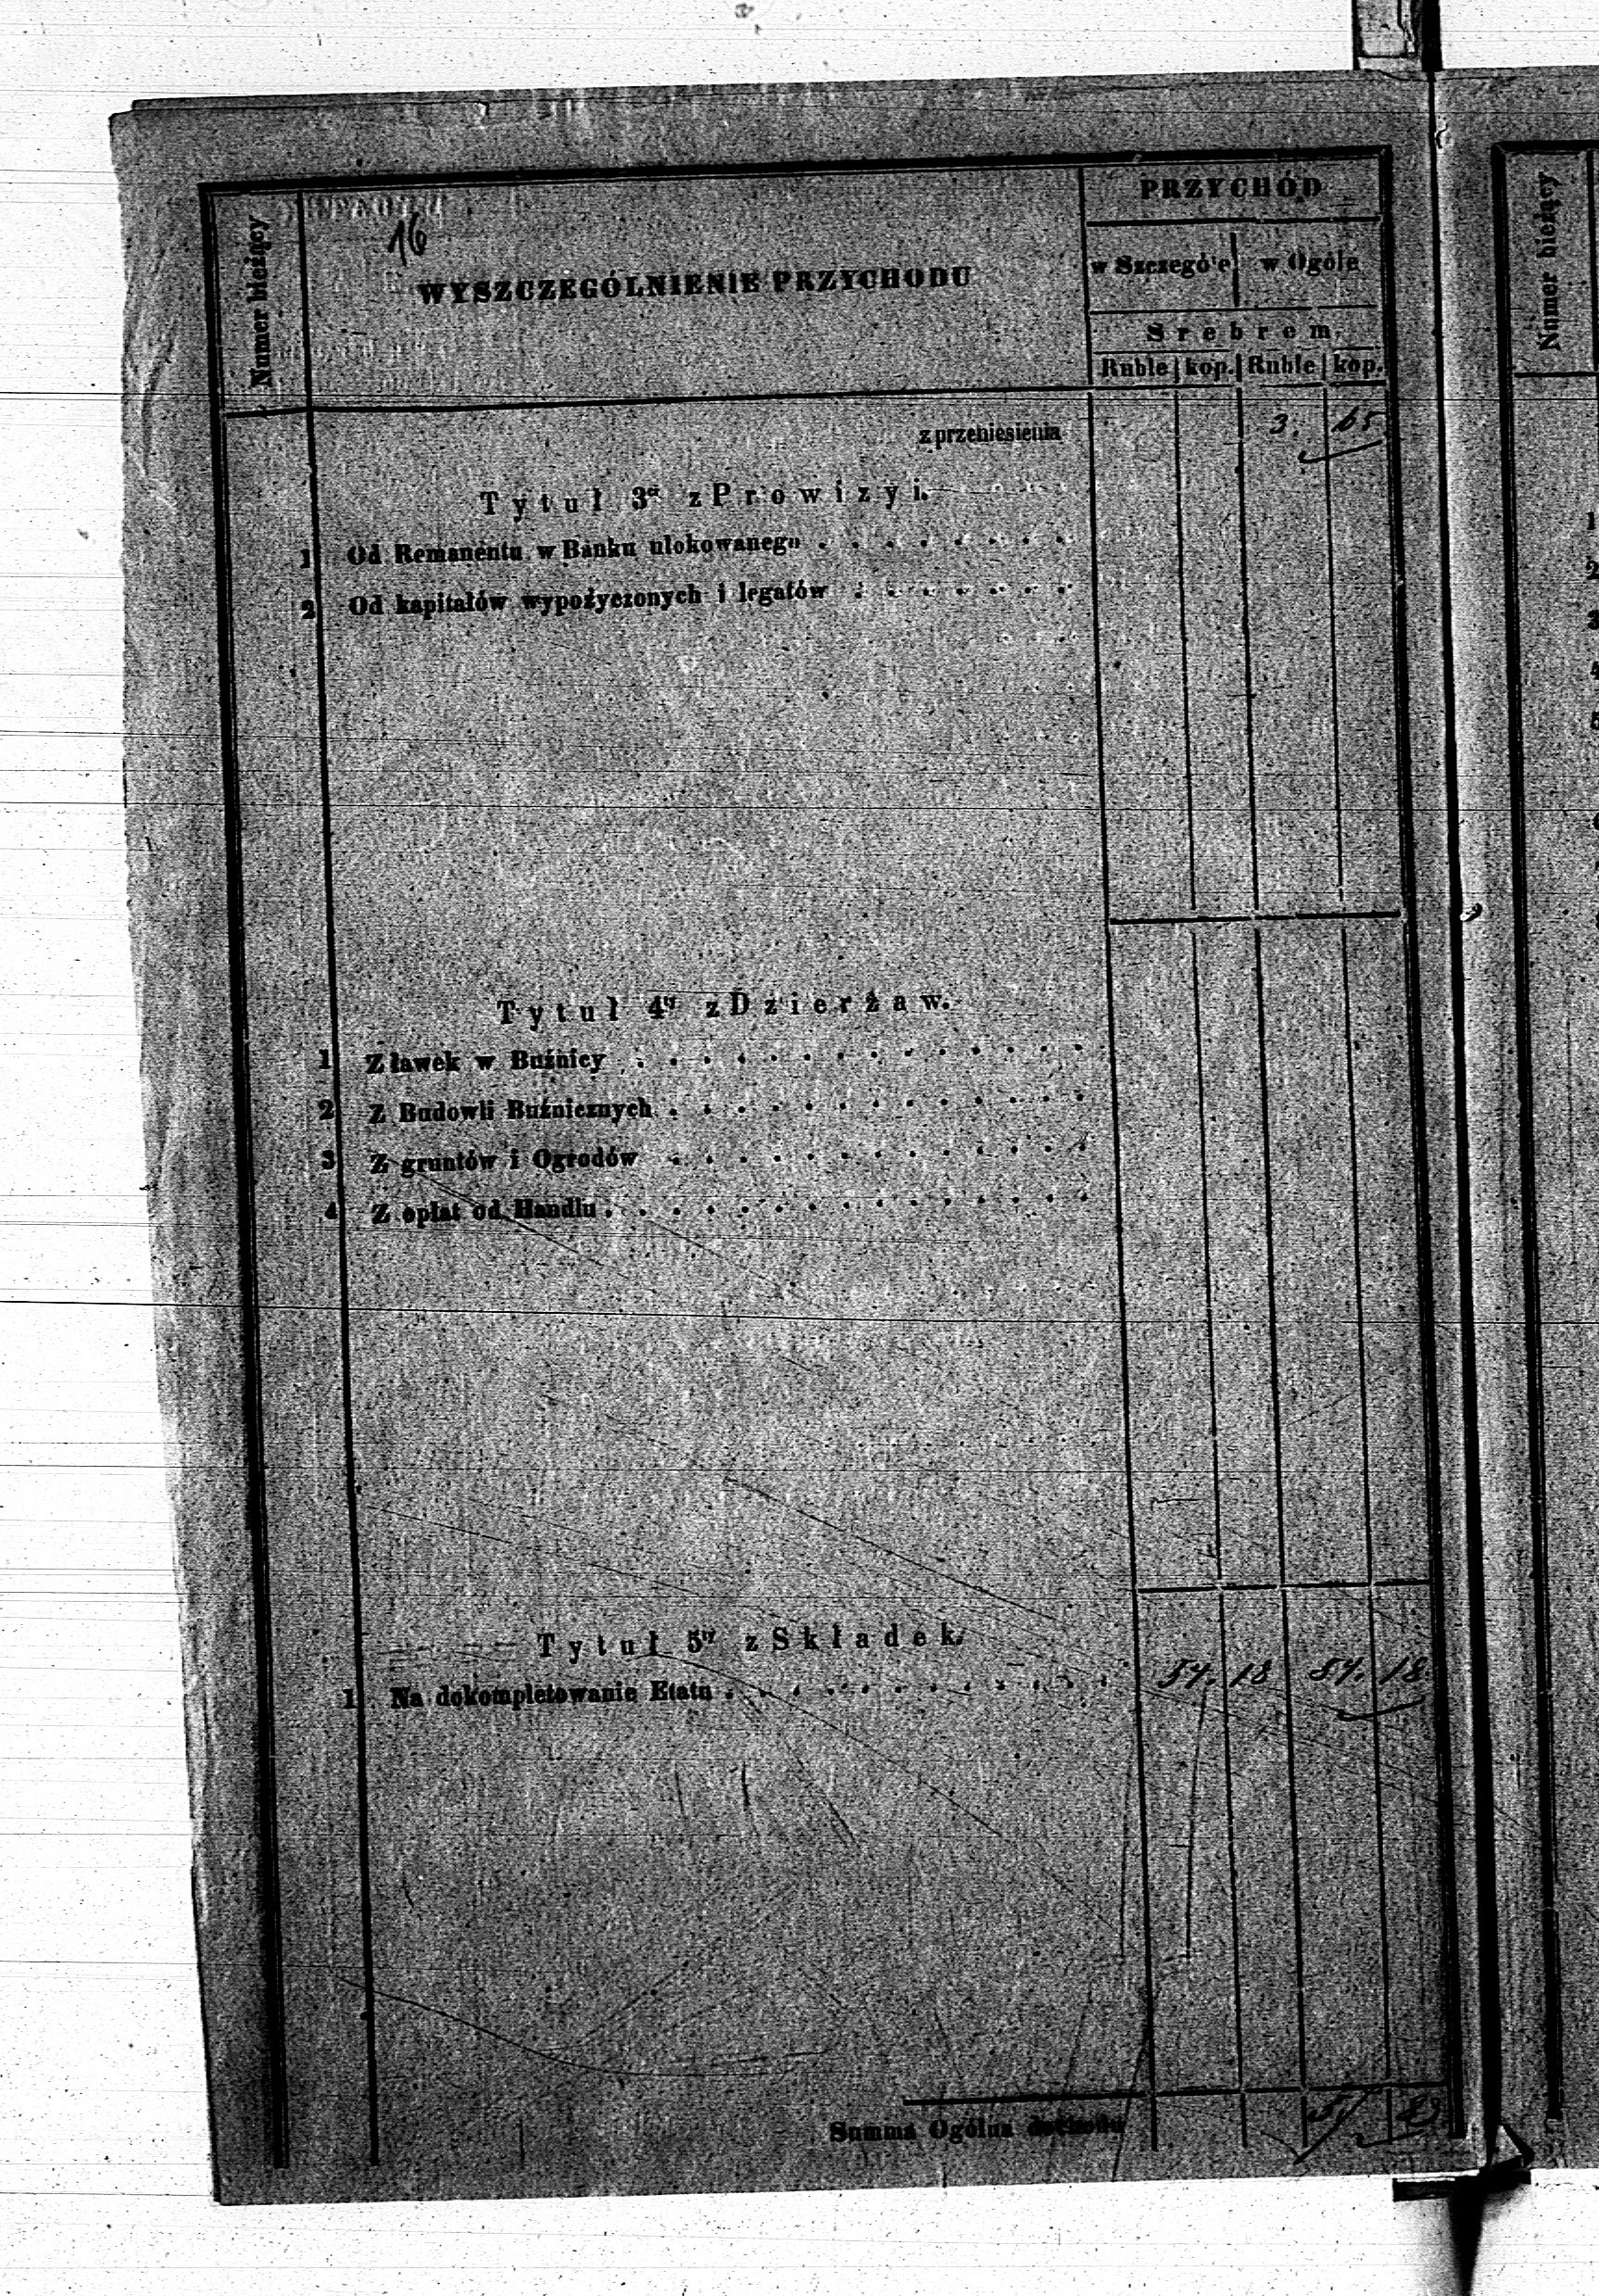 16
Numer bieżący
WYSZCZEGÓLNIENIE PRZYCHODU
PRZYCHÓD
w Szczególe w Ogóle
Srebrem.
Ruble kop. Ruble kop.
z przeniesienia 3. 65
Tytuł 3ci z Prowizyi.
1 Od Remanentu w Banku ulokowanego
2 Od kapitałów wypożyczonych i legatów
Tytuł 4ty z Dzierżaw.
1 Z ławek w Buźnicy
2 Z Budowli Buźnicznych
3 Z gruntów i Ogrodów
4 Z opłat od Handlu
Tytuł 5ty z Składek.
1 Na dokompletowanie Etatu 54. 18 54. 18
Summa Ogólna dochodu
Numer bieżący
1
2
3
4
5